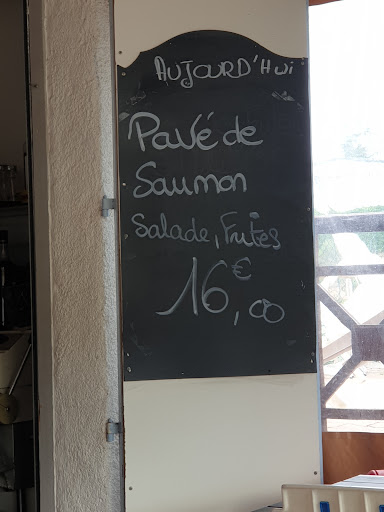 Aujourd'hui
Pavé de
Saumon
Salade, Frites
16,00€